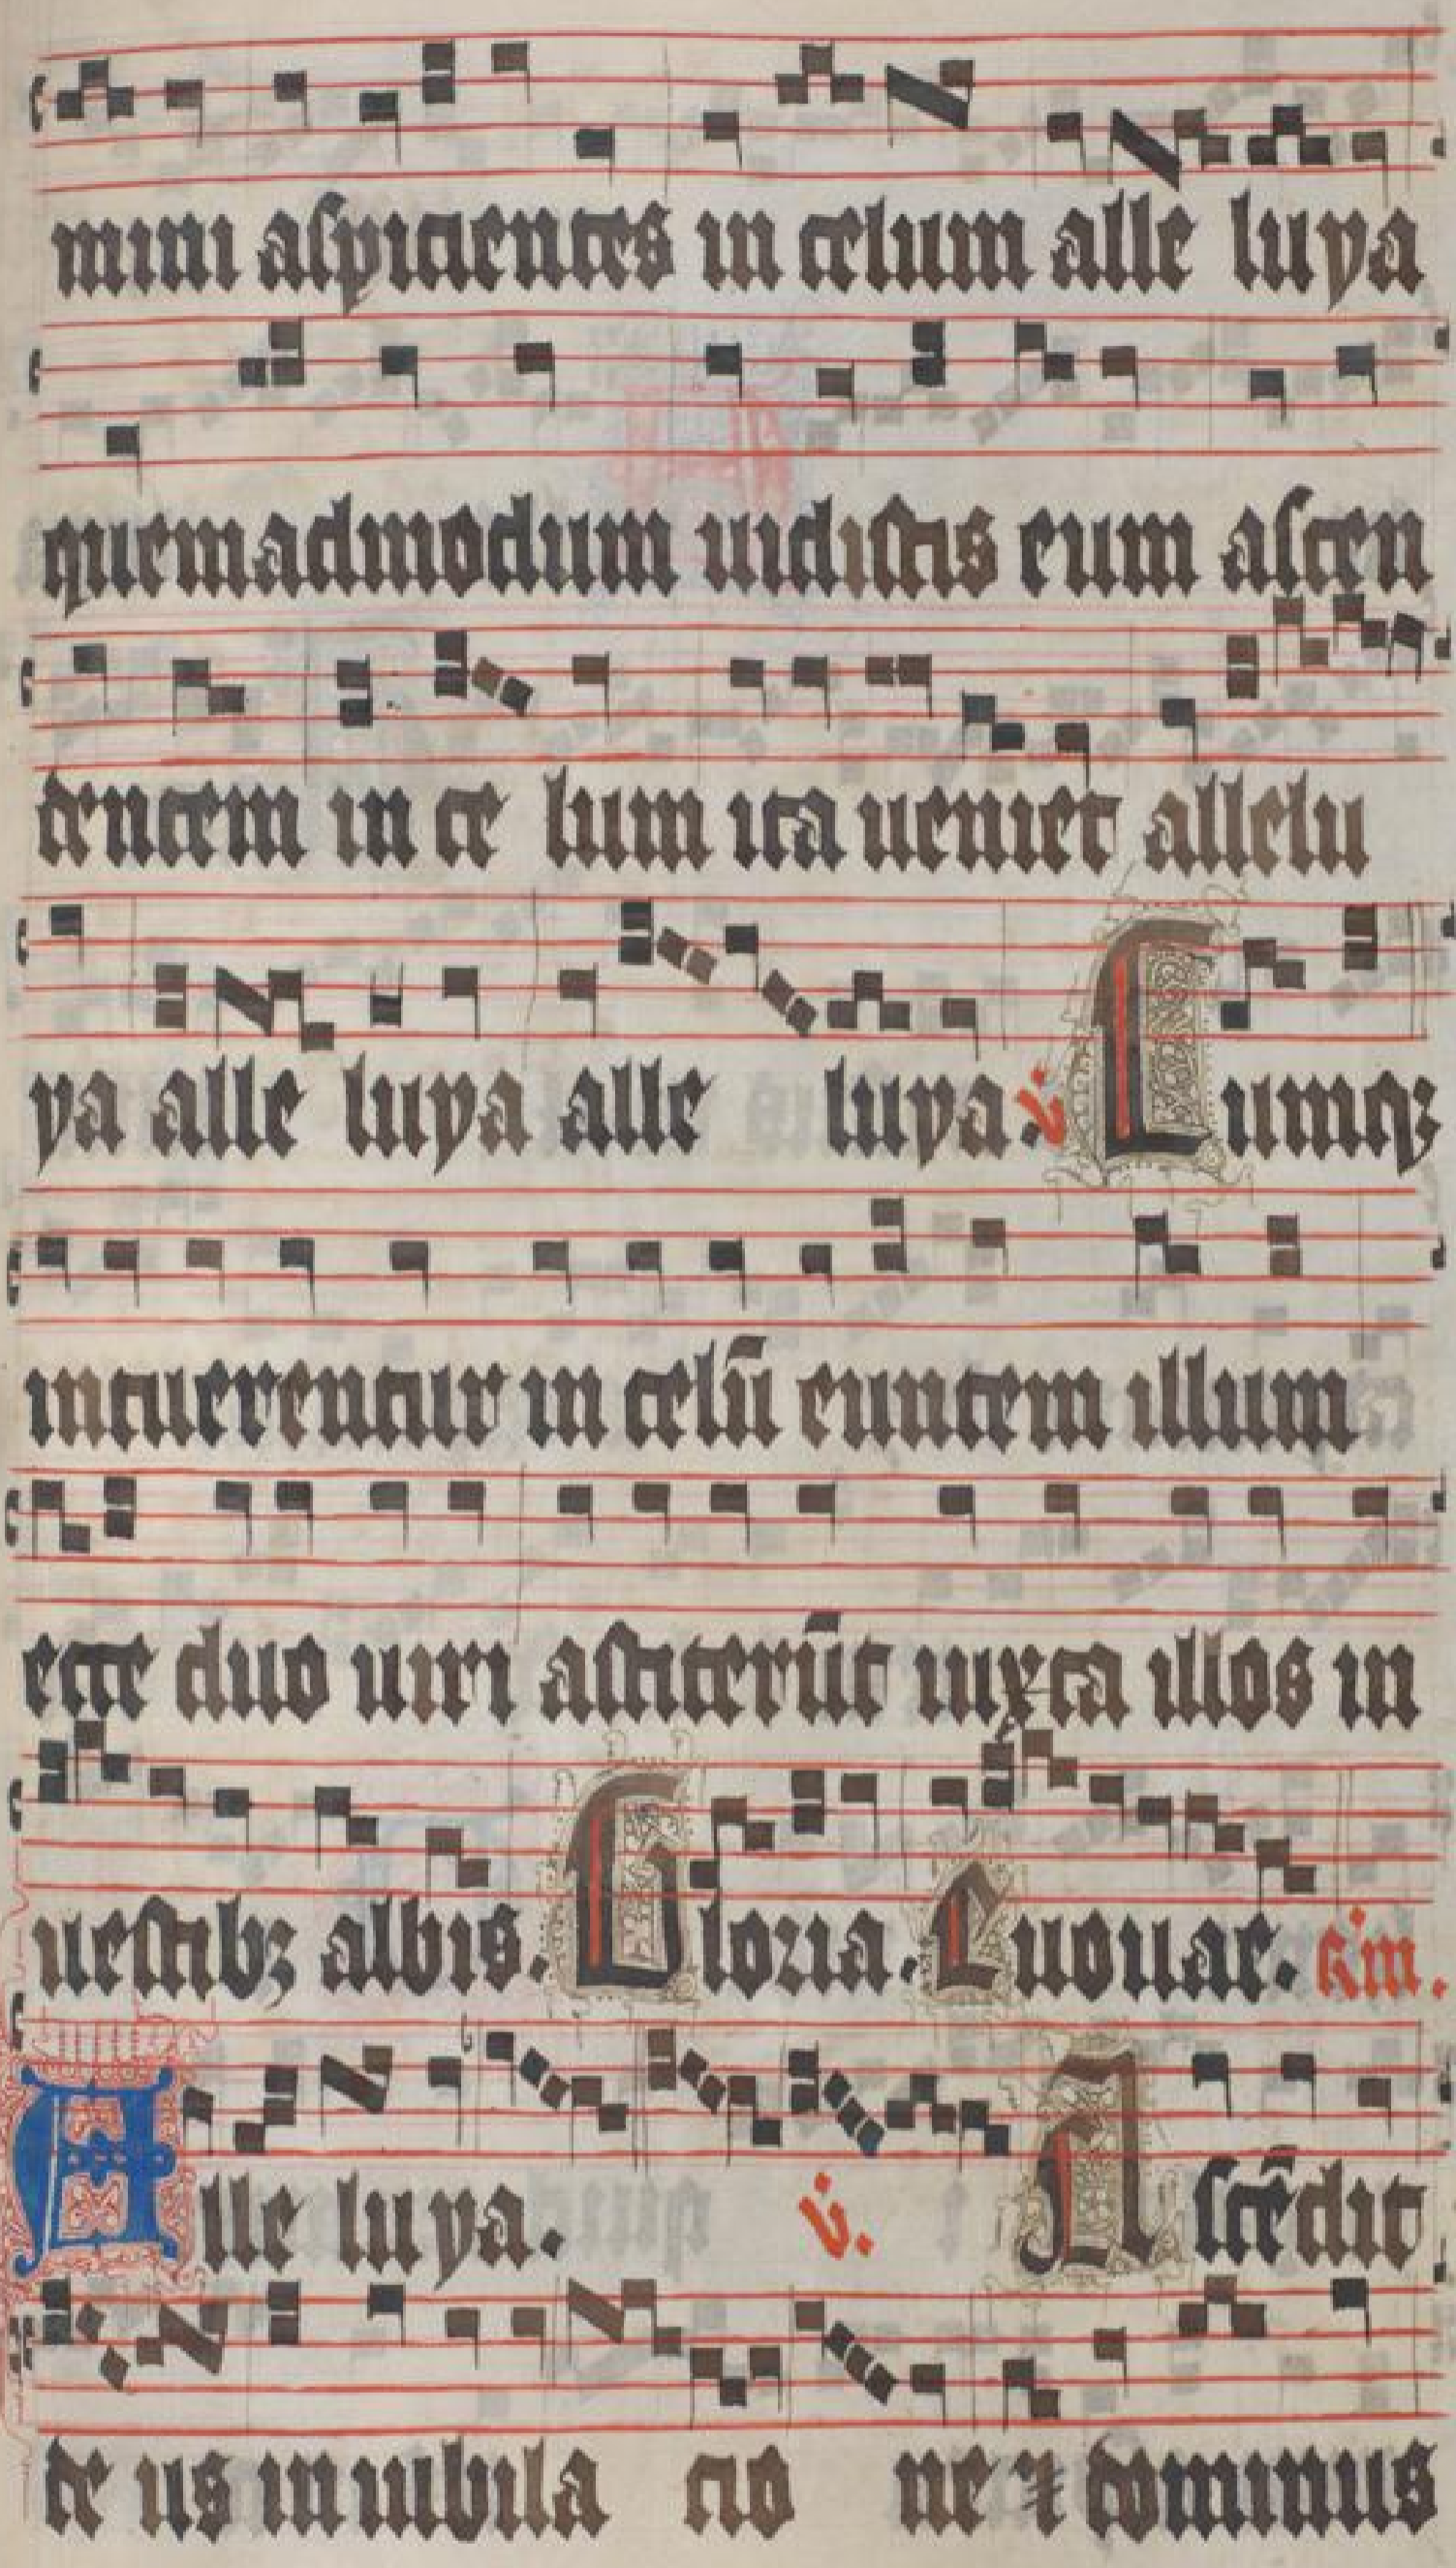 mini aspicientes in celum alle luya
quemadmodum uidistis eum ascen
dentem in ce lum ita ueniet allelu
ya alle luya alle luya. v. Cumqꝫ
intuerentur in celū euntem illum
ecce duo uiri astiterūt iuxta illos in
uestibꝫ albis. Gloria. Euouae. kīn.
Alle luya. v. Ascēdit
de us in iubila cio ne ⁊ dominus